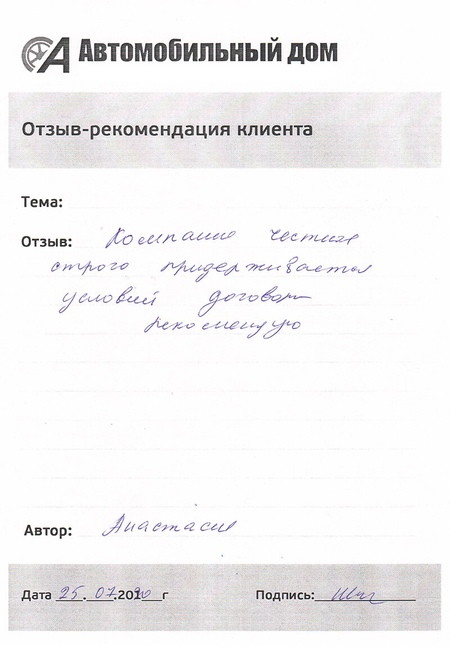 Автомобильный дом
Отзыв-рекомендация клиента
Тема:
Отзыв: Компания честная
строго придерживается
условий договора
рекомендую
Автор: Анастасия
Дата 25.07.2020 г Подпись: